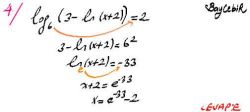 4/ log₆(3-ln(x+2))=2 BayCebir
3-ln(x+2)=6²
ln(x+2)=-33
x+2=e⁻³³
x=e⁻³³-2
CEVAP2